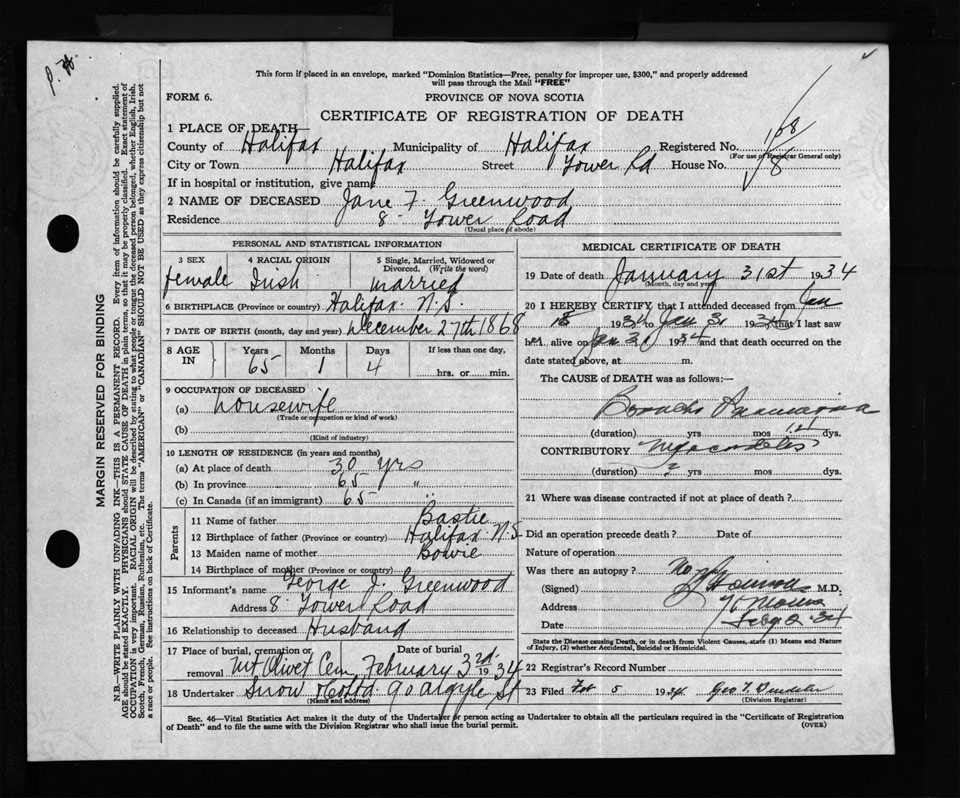 This form if placed in an envelope, marked "Dominion Statistics—Free, penalty for improper use, $300," and properly addressed
will pass through the Mail "FREE"
FORM 6.
PROVINCE OF NOVA SCOTIA
CERTIFICATE OF REGISTRATION OF DEATH
1 PLACE OF DEATH
County of Halifax Municipality of Halifax Registered No. 108
(For use of Registrar General only)
City or Town Halifax Street Tower Rd House No. 8
If in hospital or institution, give name
2 NAME OF DECEASED Jane F. Greenwood
Residence 8 Tower Road
(Usual place of abode)
PERSONAL AND STATISTICAL INFORMATION
3 SEX 4 RACIAL ORIGIN 5 Single, Married, Widowed or
Divorced. (Write the word)
female Irish married
6 BIRTHPLACE (Province or country) Halifax N.S.
7 DATE OF BIRTH (month, day and year) December 27th 1868
8 AGE IN Years Months Days If less than one day,
65 1 4 hrs. or min.
9 OCCUPATION OF DECEASED
(a) housewife
(Trade or occupation or kind of work)
(b)
(Kind of industry)
10 LENGTH OF RESIDENCE (in years and months)
(a) At place of death 30 yrs
(b) In province 65 "
(c) In Canada (if an immigrant) 65 "
Parents
11 Name of father Bastie
12 Birthplace of father (Province or country) Halifax N.S
13 Maiden name of mother Bowie
14 Birthplace of mother (Province or country)
15 Informant's name George J. Greenwood
Address 8 Tower Road
16 Relationship to deceased Husband
17 Place of burial, cremation or Date of burial
removal Mt Olivet Cem February 3rd 1934
18 Undertaker Snow & Co Ltd. 90 Argyle St
(Name and address)
MEDICAL CERTIFICATE OF DEATH
19 Date of death January 31st 1934
(Month, day and year)
20 I HEREBY CERTIFY, that I attended deceased from Jan
18 1934 to Jan 31 1934 that I last saw
her alive on Jan 31 1934 and that death occurred on the
date stated above, at m.
The CAUSE of DEATH was as follows:—
Broncho Pneumonia
(duration) yrs mos dys.
CONTRIBUTORY Myocarditis
(duration) ? yrs mos. dys.
21 Where was disease contracted if not at place of death?
Did an operation precede death? Date of
Nature of operation
Was there an autopsy? No
(Signed) M.D.
Address Morris
Date Feby 2 '34
State the Disease causing Death, or in death from Violent Causes, state (1) Means and Nature
of Injury, (2) whether Accidental, Suicidal or Homicidal.
22 Registrar's Record Number
23 Filed Feb 5 1934 Geo T.
(Division Registrar)
Sec. 46—Vital Statistics Act makes it the duty of the Undertaker or person acting as Undertaker to obtain all the particulars required in the "Certificate of Registration
of Death" and to file the same with the Division Registrar who shall issue the burial permit.
(OVER)
MARGIN RESERVED FOR BINDING
N.B.—WRITE PLAINLY WITH UNFADING INK—THIS IS A PERMANENT RECORD. Every item of information should be carefully supplied.
AGE should be stated EXACTLY. PHYSICIANS should STATE CAUSE OF DEATH in plain terms, so that it may be properly classified. Exact statement of
OCCUPATION is very important. RACIAL ORIGIN will be described by stating to what people or tongue the deceased person belonged, whether English, Irish,
Scotch, French, German, Russian, Ruthenian, etc. The terms "AMERICAN" or "CANADIAN" SHOULD NOT BE USED as they express citizenship but not
a race or people. See instructions on back of Certificate.